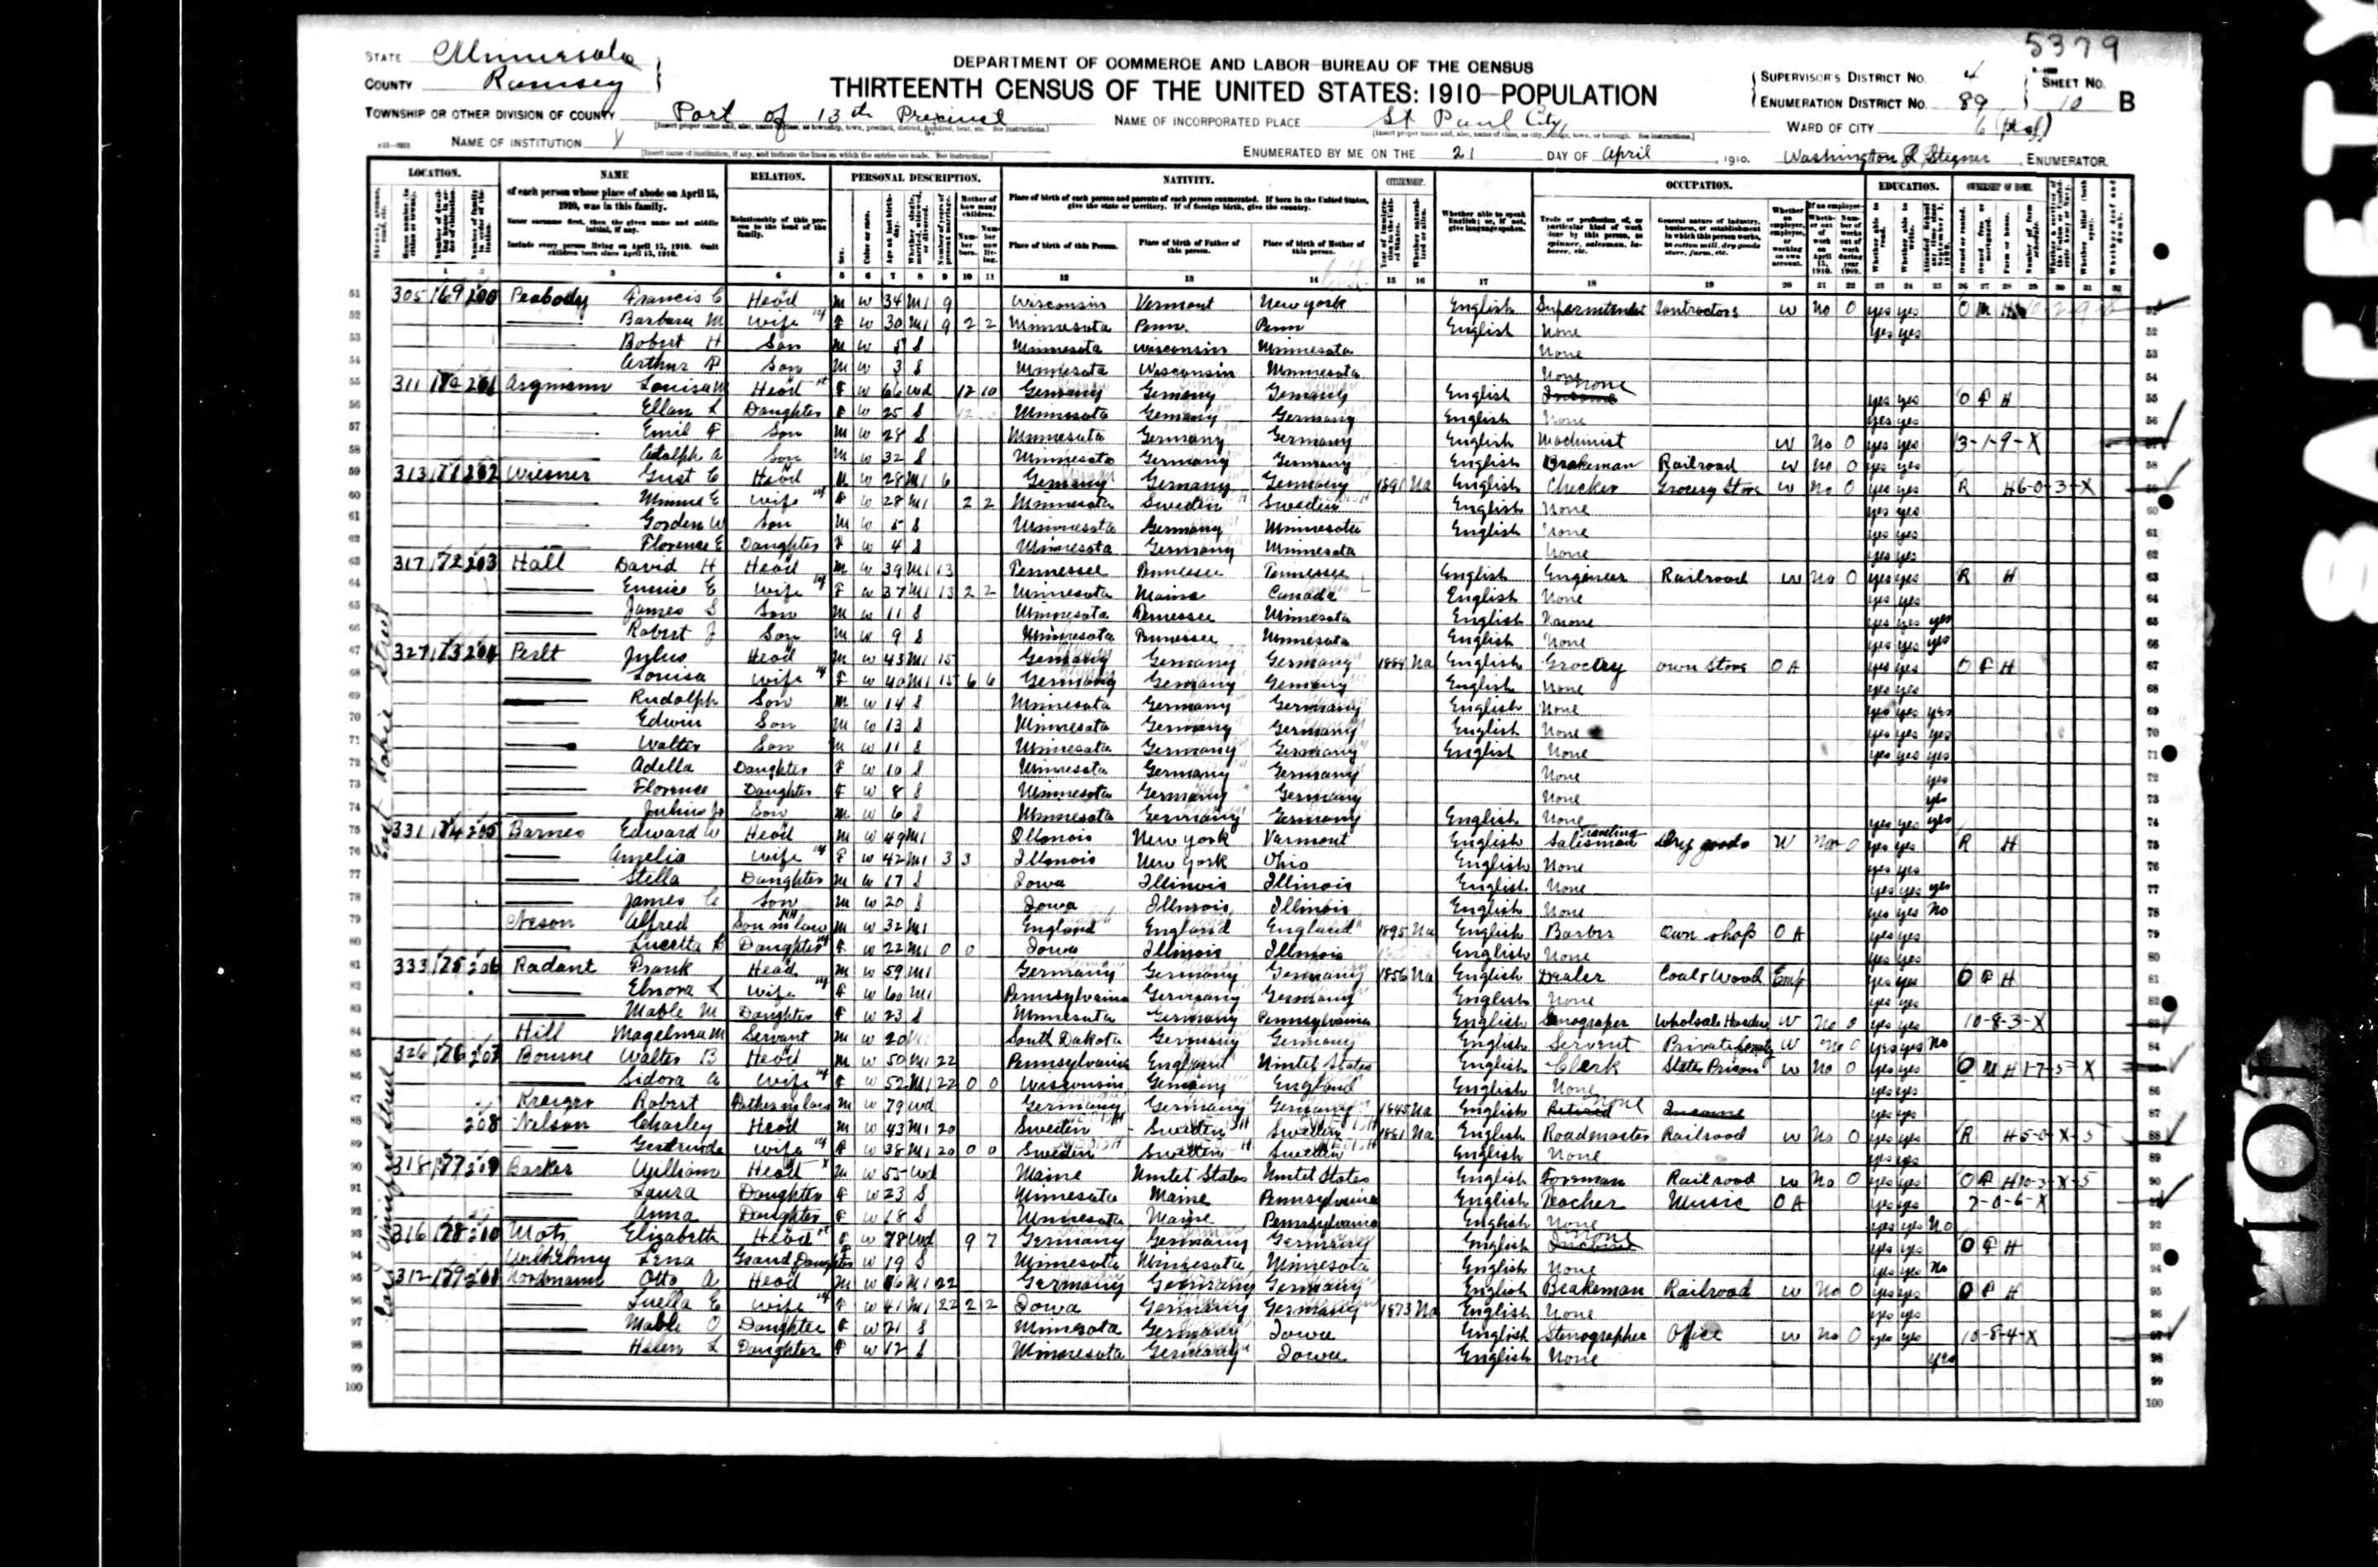 5379
STATE Minnesota
COUNTY Ramsey
DEPARTMENT OF COMMERCE AND LABOR—BUREAU OF THE CENSUS
THIRTEENTH CENSUS OF THE UNITED STATES: 1910—POPULATION
SUPERVISOR'S DISTRICT NO. 4
ENUMERATION DISTRICT NO. 89
SHEET NO. 10 B
TOWNSHIP OR OTHER DIVISION OF COUNTY Part of 13th Precinct
NAME OF INCORPORATED PLACE St Paul City
WARD OF CITY 6
NAME OF INSTITUTION X
ENUMERATED BY ME ON THE 21 DAY OF April, 1910. Washington Stegner, ENUMERATOR.
LOCATION. NAME RELATION. PERSONAL DESCRIPTION. NATIVITY. CITIZENSHIP. OCCUPATION. EDUCATION. OWNERSHIP OF HOME.
of each person whose place of abode on April 15, 1910, was in this family.
Enter surname first, then the given name and middle initial, if any.
Include every person living on April 15, 1910. Omit children born since April 15, 1910.
Relationship of this person to the head of the family.
Place of birth of each person and parents of each person enumerated. If born in the United States, give the state or territory. If of foreign birth, give the country.
Place of birth of this Person. Place of birth of Father of this person. Place of birth of Mother of this person.
51 305 169 200 Peabody Francis C Head M W 34 M1 9 Wisconsin Vermont New York English Superintendent Contractors W No 0 yes yes O M H
52 Barbara M Wife F W 30 M1 9 2 2 Minnesota Penn. Penn English None yes yes
53 Robert H Son M W S Minnesota Wisconsin Minnesota None
54 Arthur Son M W 3 S Minnesota Wisconsin Minnesota None
55 311 170 201 Asgmann Louisa M Head F W 66 Wd 12 10 Germany Germany Germany English None yes yes O F H
56 Ellan L Daughter F W 25 S Minnesota Germany Germany English None yes yes
57 Emil F Son M W 28 S Minnesota Germany Germany English Machinist W No 0 yes yes 3-1-9-X
58 Adolph A Son M W 32 S Minnesota Germany Germany English Brakeman Railroad W No 0 yes yes
59 313 171 202 Wiesner Gust C Head M W 28 M1 6 Germany Germany Germany 1891 Na English Checker Grocery Store W No 0 yes yes R H 6-0-3-X
60 Minnie E Wife F W 28 M1 2 2 Minnesota Sweden Sweden English None yes yes
61 Gorden W Son M W 5 S Minnesota Germany Minnesota English None yes yes
62 Florence E Daughter F W 4 S Minnesota Germany Minnesota None yes yes
63 317 172 203 Hall David H Head M W 39 M1 13 Tennessee Tennessee Tennessee English Engineer Railroad W No 0 yes yes R H
64 Eunice E Wife F W 37 M1 13 2 2 Minnesota Maine Canada English None yes yes
65 James S Son M W 11 S Minnesota Tennessee Minnesota English None yes yes yes
66 Robert J Son M W 9 S Minnesota Tennessee Minnesota English None yes yes yes
67 327 173 204 Perlt Julius Head M W 43 M1 15 Germany Germany Germany 1884 Na English Grocery Own Store O A yes yes O F H
68 Louisa Wife F W 40 M1 15 6 6 Germany Germany Germany English None yes yes
69 Rudolph Son M W 14 S Minnesota Germany Germany English None yes yes yes
70 Edwin Son M W 13 S Minnesota Germany Germany English None yes yes yes
71 Walter Son M W 11 S Minnesota Germany Germany English None yes yes yes
72 Adella Daughter F W 10 S Minnesota Germany Germany None yes
73 Florence Daughter F W 8 S Minnesota Germany Germany None yes
74 Julius Jr Son M W 6 S Minnesota Germany Germany English None yes yes yes
75 331 174 205 Barnes Edward W Head M W 49 M1 Illonois New York Varmont English Traveling Salesman Dry goods W No 0 yes yes R H
76 Amelia Wife F W 42 M1 3 3 Illonois New York Ohio English None yes yes
77 Stella Daughter M W 17 S Iowa Illinois Illinois English None yes yes yes
78 James C Son M W 20 S Iowa Illinois Illinois English None yes yes No
79 Neson Alfred Son in law M W 32 M1 England England England 1895 Na English Barber Own shop O A yes yes
80 Lucetta B Daughter F W 22 M1 0 0 Iowa Illinois Illinois English None yes yes
81 333 175 206 Radant Frank Head M W 59 M1 Germany Germany Germany 1856 Na English Dealer Coal & Wood Emp yes yes O F H
82 Elnora L Wife F W 60 M1 Pennsylvania Germany Germany English None yes yes
83 Mable M Daughter F W 23 S Minnesota Germany Pennsylvania English Wholsale W No 0 yes yes 10-8-3-X
84 Hill Magelma M Servant M W 20 South Dakota Germany Germany English Servent Private family W No 0 yes yes No
85 326 176 207 Bourne Walter B Head M W 50 M1 22 Pennsylvania England Unitet States English Clerk State Prison W No 0 yes yes O M H 1-7-5-X
86 Sidora A Wife F W 52 M1 22 0 0 Wisconsin Germany England English None yes yes
87 Kreiger Robert Father in law M W 79 Wd Germany Germany Germany 1845 Na English Retired None Income yes yes
88 208 Nelson Charley Head M W 43 M1 20 Sweden Sweden Sweden 1881 Na English Roadmaster Railroad W No 0 yes yes R H 5-0-X-5
89 Gertrude Wife F W 38 M1 20 0 0 Sweden Sweden Sweden English None yes yes
90 318 177 209 Barker William Head M W 55 Wd Maine Unitet States Unitet States English Foreman Railroad W No 0 yes yes O F H 10-3-X-5
91 Laura Daughter F W 23 S Minnesota Maine Pennsylvania English Teacher Music O A yes yes 7-0-6-X
92 Anna Daughter F W 18 S Minnesota Maine Pennsylvania English None yes yes No
93 316 178 210 Mots Elizabeth Head F W 78 Wd 9 7 Germany Germany Germany English None yes yes O F H
94 Lena Grand Daughter W 19 S Minnesota Minnesota Minnesota English None yes yes No
95 312 179 Nordmann Otto A Head M W M1 22 Germany Germany Germany English Brakeman Railroad W No 0 yes yes O F H
96 Luella E Wife F W 41 M1 22 2 2 Iowa Germany Germany 1873 Na English None yes yes
97 Mable O Daughter F W 21 S Minnesota Germany Iowa English Stenographer Office W No 0 yes yes 10-8-4-X
98 Helen L Daughter F W 12 S Minnesota Germany Iowa English None yes
99
100
SAFETY